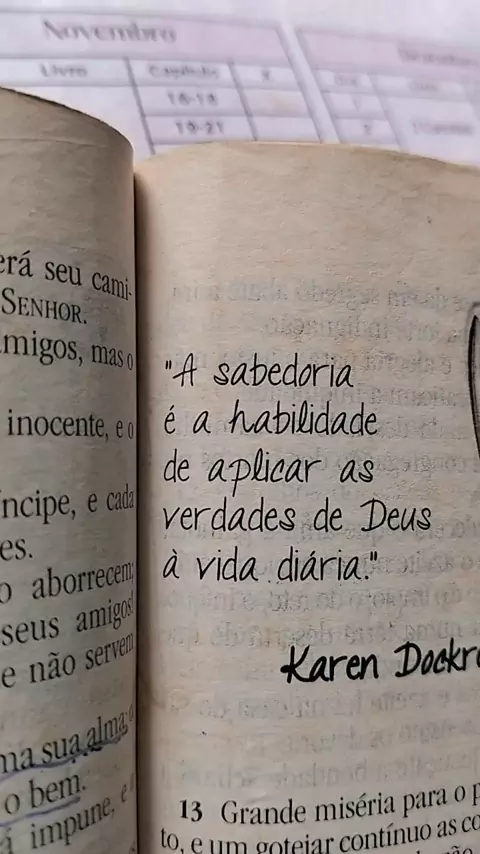 Novembro
Livro Capítulo X
16-18
19-21
erá seu cami-
SENHOR.
amigos, mas o
inocente, e o
íncipe, e cada
es.
o aborrecem;
seus amigos!
e não servem
ma sua alma; o
o bem.
á impune, e
"A sabedoria
é a habilidade
de aplicar as
verdades de Deus
à vida diária."
Karen Dockr
13 Grande miséria para o p
to, e um gotejar contínuo as co